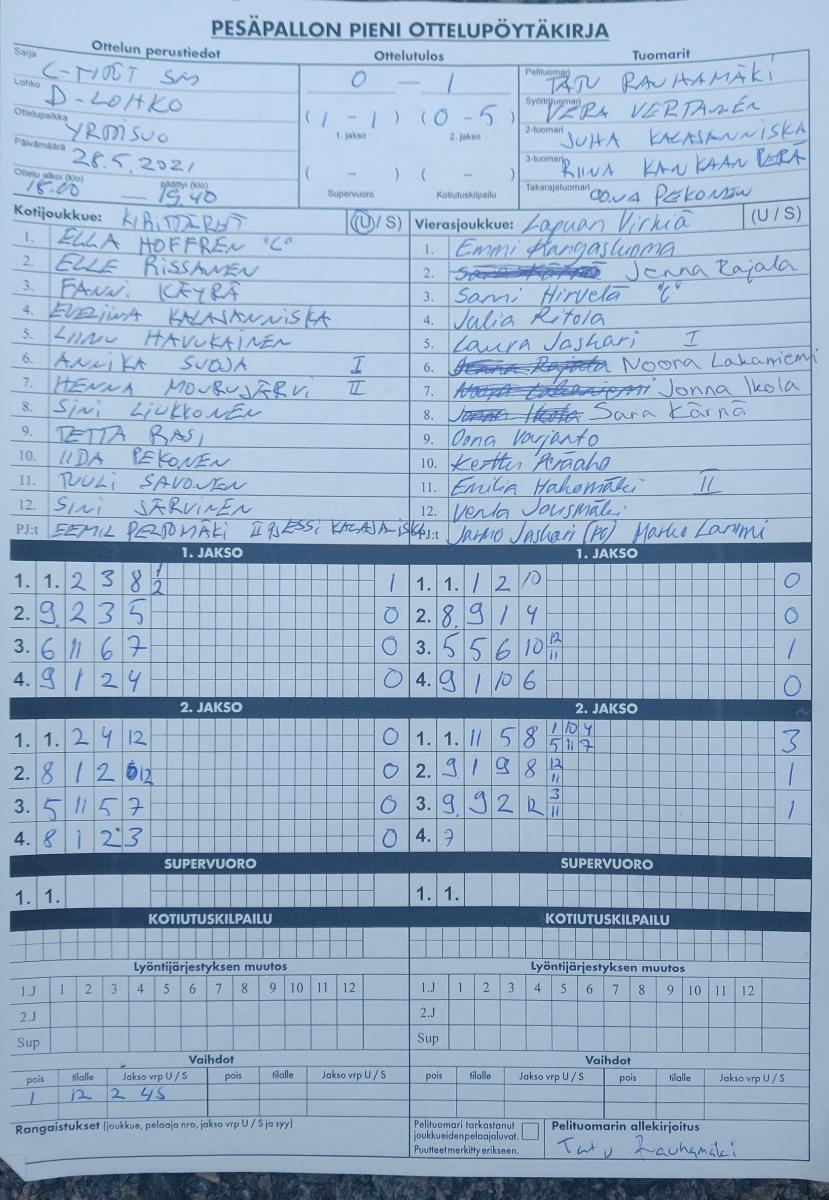 PESÄPALLON PIENI OTTELUPÖYTÄKIRJA
Ottelun perustiedot Ottelutulos Tuomarit
Sarja C-TYTÖT SM 0 — 1 Pelituomari TATU RAUHAMÄKI
Lohko D-LOHKO (1 - 1) (0 - 5) Syöttötuomari VERA VERTANEN
Ottelupaikka YRMISUO 1. jakso 2. jakso 2-tuomari JUHA KALAJANNISKA
Päivämäärä 28.5.2021 ( - ) ( - ) 3-tuomari RIINA KANKAANPERÄ
Ottelu alkoi (klo) 18.00 — päättyi (klo) 19.40 Supervuoro Kotiutuskilpailu Takarajatuomari OONA PEKONEN
Kotijoukkue: KIRITTÄRET (U / S) Vierasjoukkue: Lapuan Virkiä (U / S)
1. ELLA HOFFREN "C" 1. Emmi Kangasluoma
2. ELLE RISSANEN 2. Sara Kärnä Jenna Rajala
3. FANNI KÄYRÄ 3. Sanni Hirvelä "C"
4. EVELIINA KALAJANNISKA 4. Julia Ritola
5. LIINU HAVUKAINEN 5. Laura Jaskari I
6. ANNIKA SUOJA I 6. Jenna Rajala Noora Lakaniemi
7. HENNA MOURUJÄRVI II 7. Noora Lakaniemi Jonna Ikola
8. SINI LIUKKONEN 8. Jonna Ikola Sara Kärnä
9. TETTA RASI 9. Oona Varjanto
10. IIDA PEKONEN 10. Kerttu Peräaho
11. TUULI SAVONEN 11. Emilia Hakomäki II
12. SINI JÄRVINEN 12. Venla Jousmäki
PJ:t EEMIL PELTOMÄKI ESSI PJ:t Jarmo Jaskari (PJ) Marko Lammi
1. JAKSO 1. JAKSO
1. 1. 2 3 8 1 1 1. 1. 1 2 10 0
2
2. 9 2 3 5 0 2. 8 9 1 4 0
3. 6 11 6 7 0 3. 5 5 6 10 12 1
11
4. 9 1 2 4 0 4. 9 1 10 6 0
2. JAKSO 2. JAKSO
1. 1. 2 4 12 0 1. 1. 11 5 8 1 10 4 3
5 11 7
2. 8 1 2 12 0 2. 9 1 9 8 12 1
11
3. 5 11 5 7 0 3. 9 9 2 12 3 1
11
4. 8 1 2 3 0 4. 7
SUPERVUORO SUPERVUORO
1. 1. 1. 1.
KOTIUTUSKILPAILU KOTIUTUSKILPAILU
Lyöntijärjestyksen muutos Lyöntijärjestyksen muutos
1.J 1 2 3 4 5 6 7 8 9 10 11 12 1.J 1 2 3 4 5 6 7 8 9 10 11 12
2.J 2.J
Sup Sup
Vaihdot Vaihdot
pois tilalle Jakso vrp U / S pois tilalle Jakso vrp U / S pois tilalle Jakso vrp U / S pois tilalle Jakso vrp U / S
1 12 2 4S
Rangaistukset (joukkue, pelaaja nro, jakso vrp U / S ja syy) Pelituomari tarkastanut Pelituomarin allekirjoitus
joukkueiden pelaajaluvat.
Puutteet merkitty erikseen. Tatu Rauhamäki